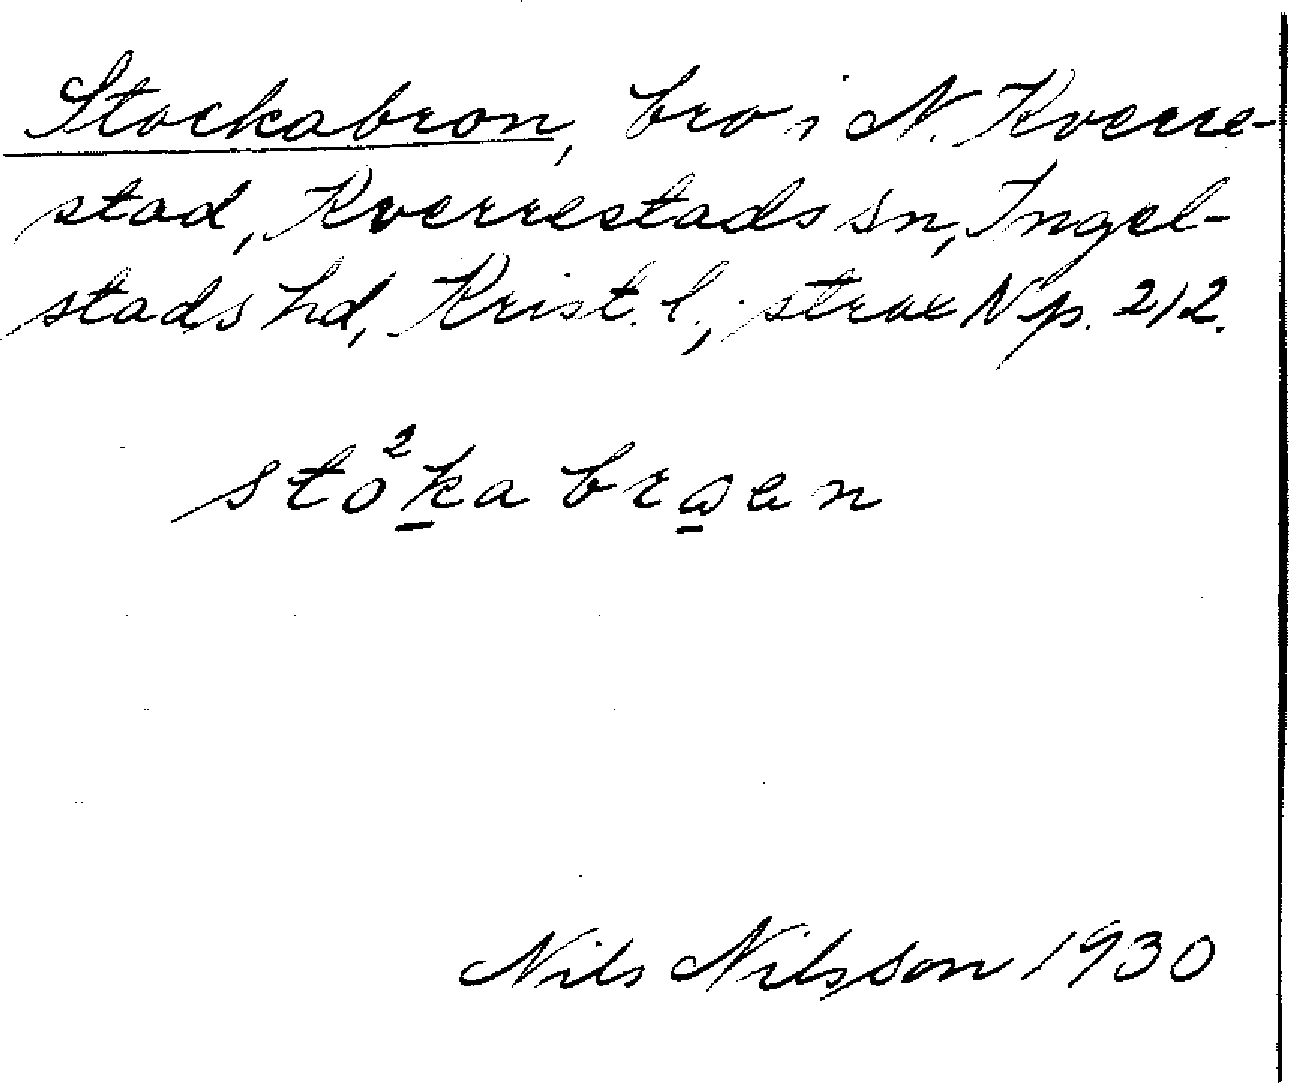 Stockabron, bro i N. Kverre-
stad, Kverrestads sn, Ingel-
stads hd, Krist. l.; strax N p. 212.
sto²ka bråen
Nils Nilsson 1930